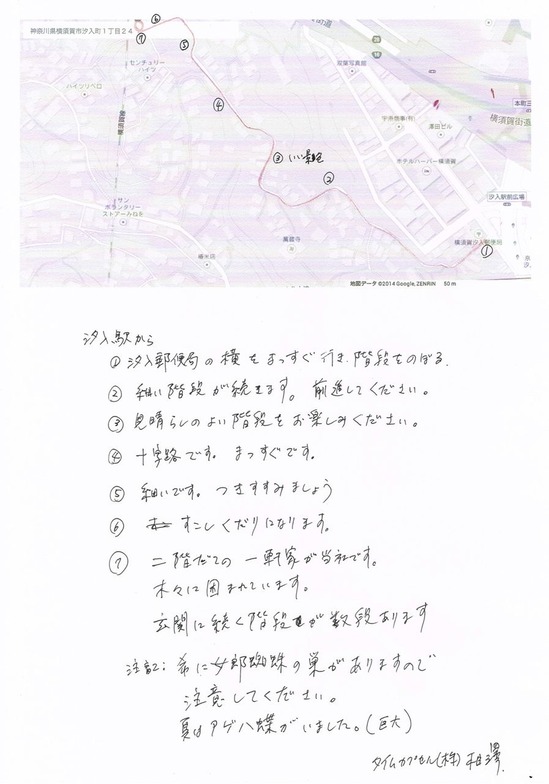 神奈川県横須賀市汐入町1丁目24
⑥
⑦
⑤
センチュリーハイツ
ハイツリベロ
双葉写真館
本町三
横須賀街道
④
宇井商事(有)
澤田ビル
③ いい景色
ホテルハーバー横須賀
②
サンボランタリーストアーみねぎ
汐入駅前広場
横須賀汐入郵便局
①
地図データ ©2014 Google, ZENRIN 50 m
汐入駅から
① 汐入郵便局の横をまっすぐ行き、階段をのぼる。
② 細い階段が続きます。前進してください。
③ 見晴らしのよい階段をお楽しみください。
④ 十字路です。まっすぐです。
⑤ 細いです。つきすすみましょう
⑥ すこしくだりになります。
⑦ 二階だての一軒家が当社です。
木々に囲まれています。
玄関に続く階段が数段あります
注記:希に女郎蜘蛛の巣がありますので
注意してください。
夏はアゲハ蝶がいました。(巨大)
タイムカプセル(株) 相澤